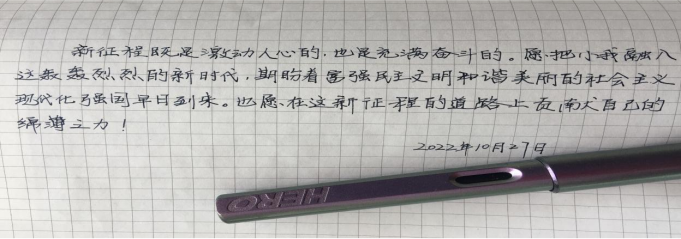 新征程既是激动人心的，也是充满奋斗的。愿把小我融入
这轰轰烈烈的新时代，期盼着富强民主文明和谐美丽的社会主义
现代化强国早日到来。也愿在这新征程的道路上贡献自己的
绵薄之力！
2022年10月27日
HERO